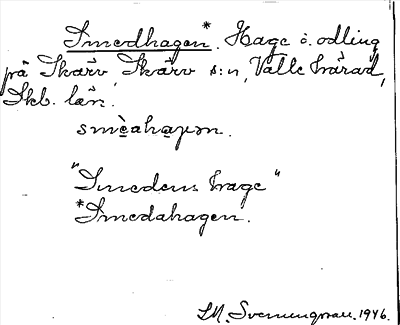 Smedhagen*. Hage o. odling
på Skärv, Skärv s:n, Valle härad,
Skb. län.
smèahaɣən.
"Smedens hage"
*Smedahagen.
S.M. Svenungsson. 1946.